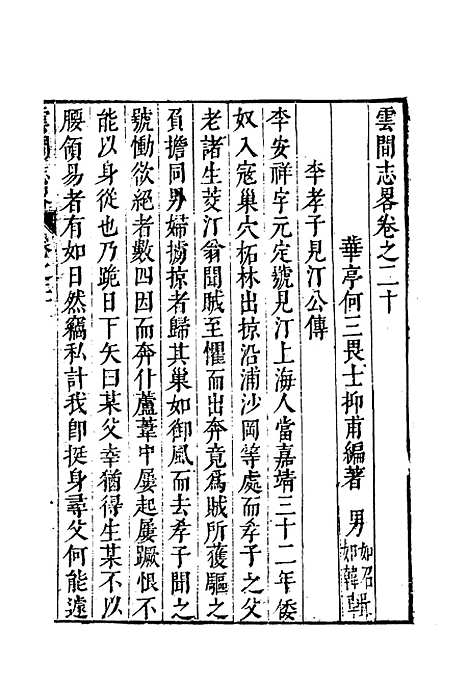 雲間志畧卷之二十
華亭何三畏士抑甫編著　男如召如韓輯
李孝子見汀公傳
李安祥字元定號見汀上海人當嘉靖三十二年倭
奴入寇巢穴柘林出掠沿浦沙岡等處而孝子之父
老諸生菱汀翁聞賊至懼而出奔竟爲賊所獲驅之
負擔同男婦擄掠者歸其巢如御風而去孝子聞之
號慟欲絕者數四因而奔仆蘆葦中屢起屢蹶恨不
能以身從也乃跪日下矢曰某父幸猶得生某不以
腰領易者有如日然竊私計我卽挺身尋父何能遽